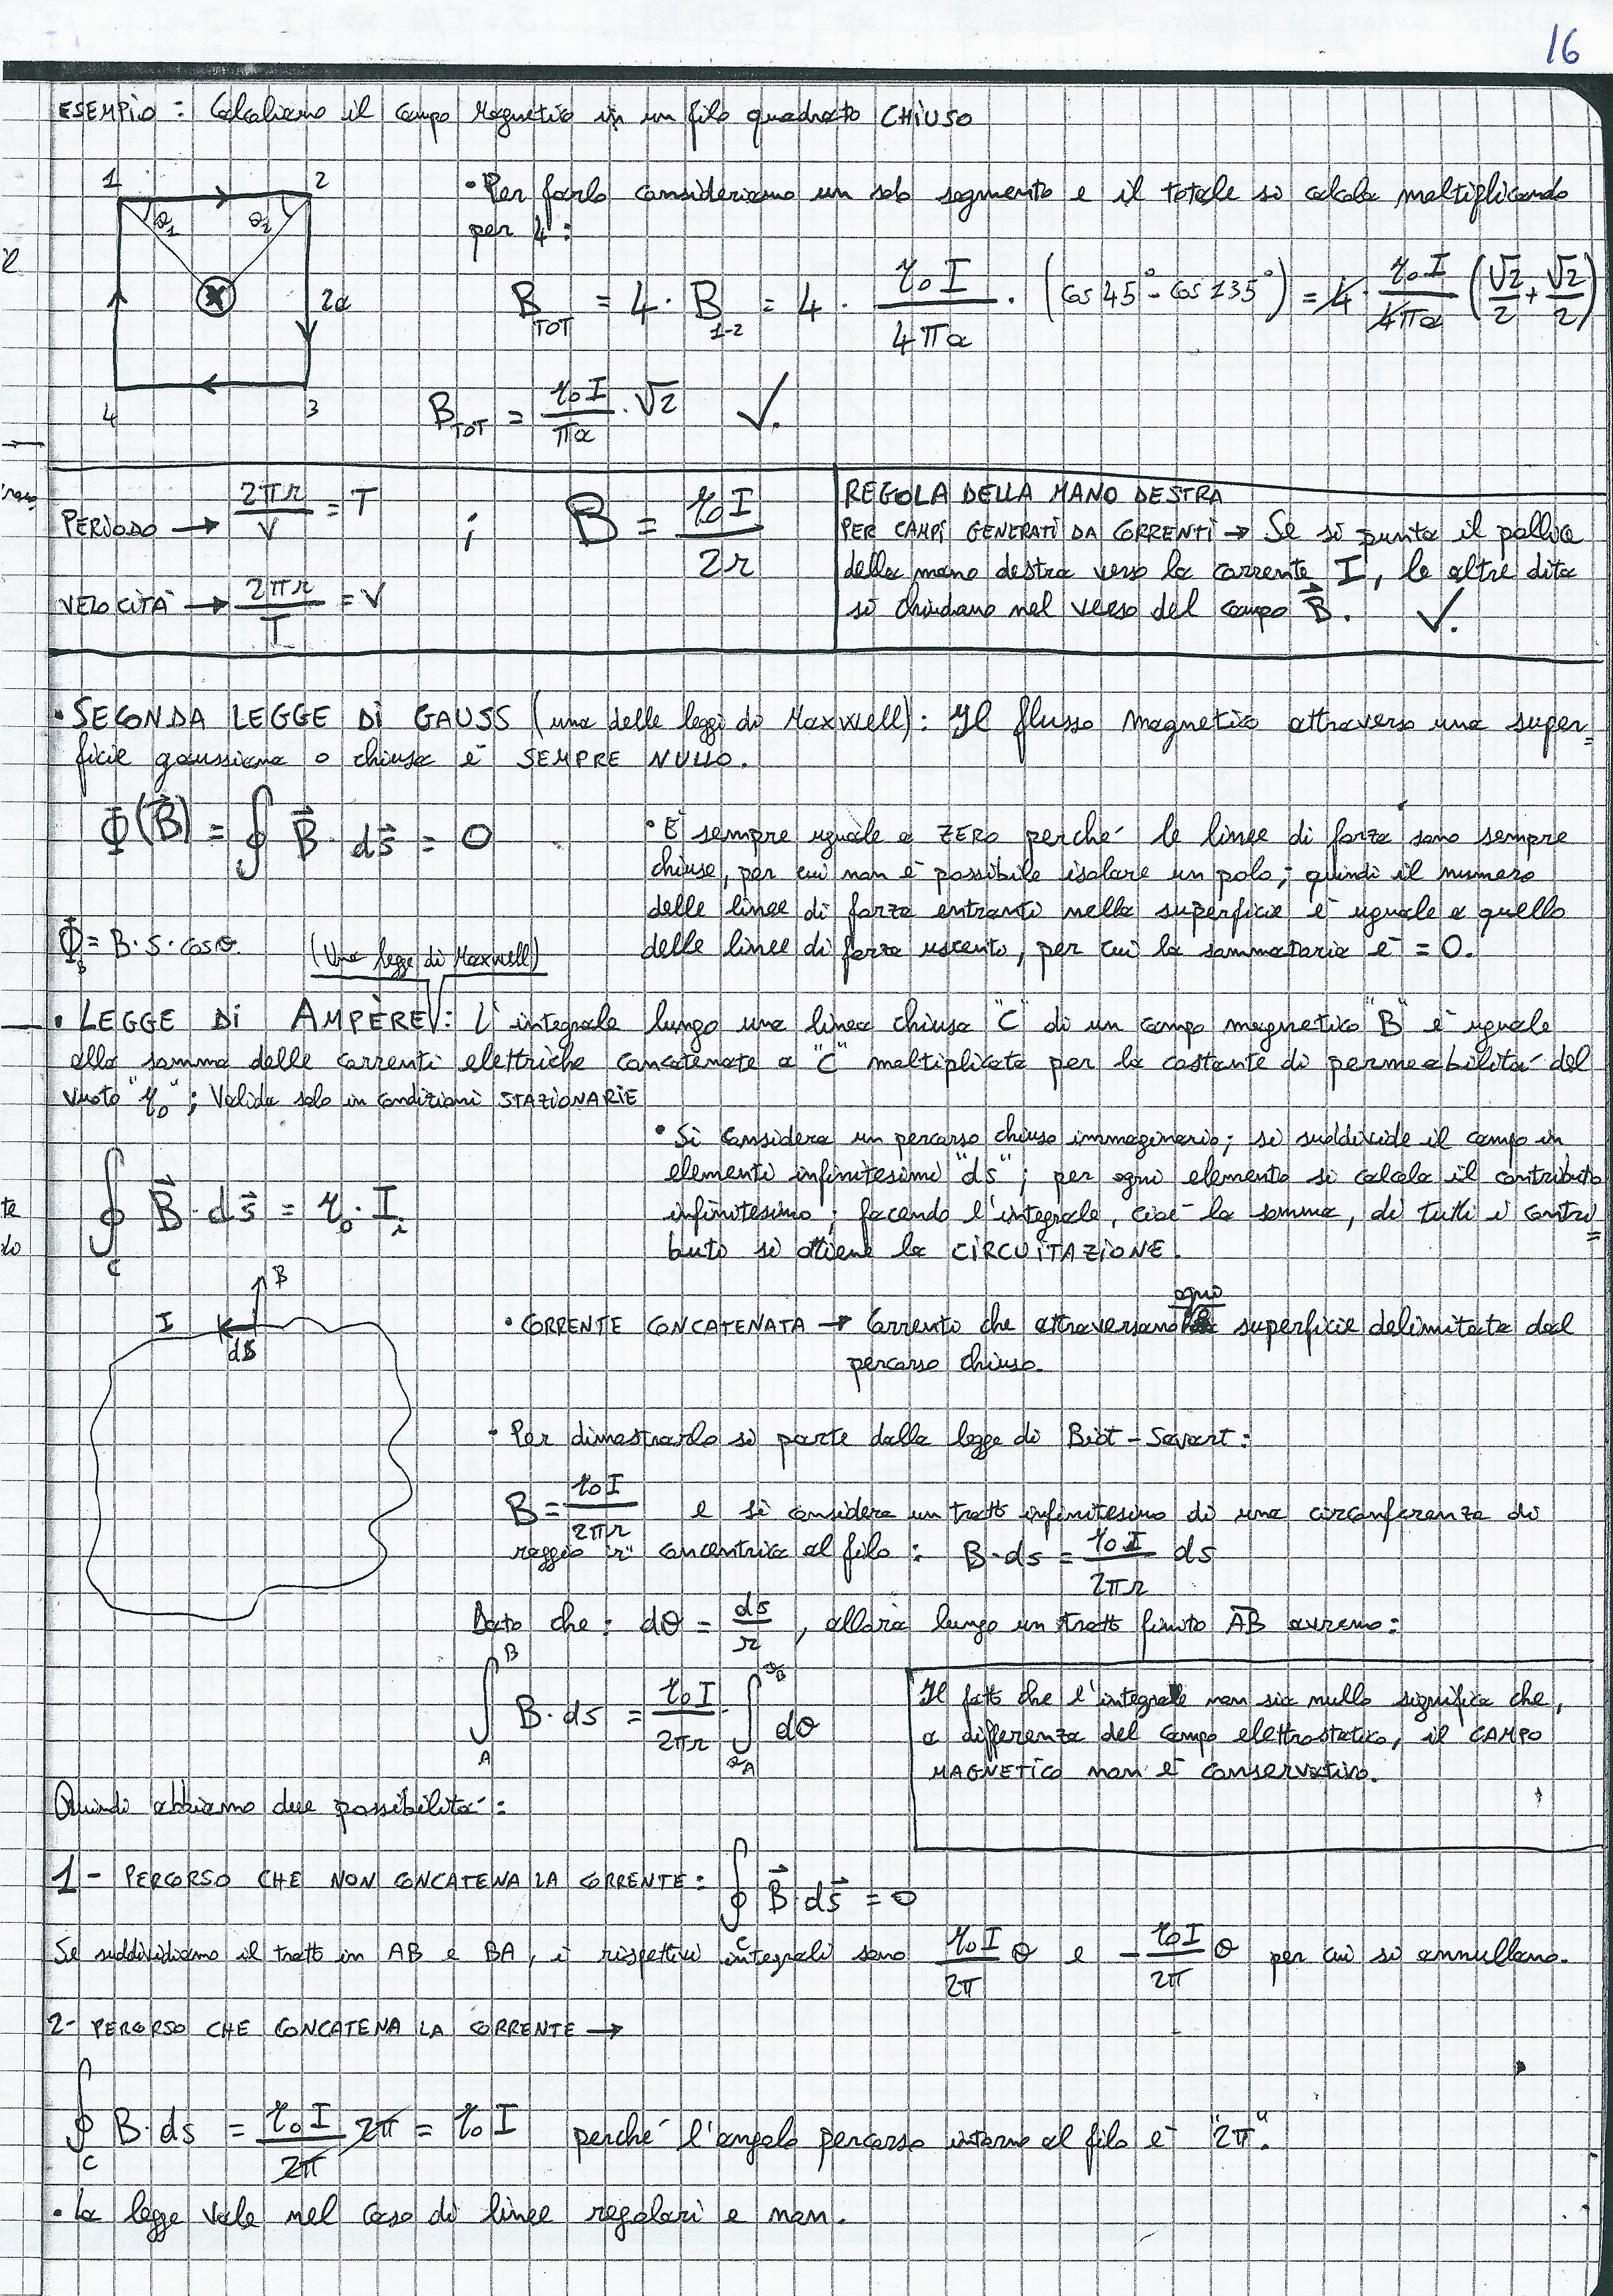 16
ESEMPIO : Calcoliamo il campo Magnetico in un filo quadrato CHIUSO
1 2
θ1 θ2
2a
4 3
• Per farlo consideriamo un solo segmento e il totale si calcola moltiplicando
per 4 :
B_TOT = 4 · B_1-2 = 4 · μ0 I / 4πa · (cos 45° - cos 135°) = 4 · μ0 I / 4πa (√2/2 + √2/2)
B_TOT = μ0 I / πa · √2 ✓.
PERIODO → 2πr / V = T ; B = μ0 I / 2r
VELOCITÀ → 2πr / T = V
REGOLA DELLA MANO DESTRA
PER CAMPI GENERATI DA CORRENTI → Se si punta il pollice
della mano destra verso la corrente I, le altre dita
si chiudono nel verso del campo B⃗. ✓.
• SECONDA LEGGE DI GAUSS (una delle leggi di Maxwell): Il flusso magnetico attraverso una super=
ficie gaussiana o chiusa è SEMPRE NULLO.
Φ(B⃗) = ∮ B⃗ · ds⃗ = 0
• È sempre uguale a ZERO perché le linee di forza sono sempre
chiuse, per cui non è possibile isolare un polo; quindi il numero
delle linee di forza entranti nella superficie è uguale a quello
delle linee di forza uscento, per cui la sommatoria è = 0.
Φ_B = B · S · cosθ.
(Una legge di Maxwell)
• LEGGE DI AMPÈRE : L'integrale lungo una linea chiusa "C" di un campo magnetico "B" è uguale
alla somma delle correnti elettriche concatenate a "C" moltiplicate per la costante di permeabilità del
vuoto "μ0" ; Valida solo in condizioni STAZIONARIE
• Si considera un percorso chiuso immaginario; si suddivide il campo in
elementi infinitesimi "ds" ; per ogni elemento si calcola il contributo
infinitesimo ; facendo l'integrale, cioè la somma, di tutti i contri=
buti si ottiene la CIRCUITAZIONE.
∮_C B⃗ · ds⃗ = μ0 · I_i
I B
ds
• CORRENTE CONCATENATA → Correnti che attraversano ogni superficie delimitata dal
percorso chiuso.
· Per dimostrarlo si parte dalla legge di Biot - Savart :
B = μ0 I / 2πr e si considera un tratto infinitesimo di una circonferenza di
raggio "r" concentrica al filo : B · ds = μ0 I / 2πr ds
Dato che : dθ = ds / r , allora lungo un tratto finito AB avremo :
∫_A^B B · ds = μ0 I / 2πr · ∫_θA^θB dθ
Il fatto che l'integrale non sia nullo significa che,
a differenza del campo elettrostatico, il CAMPO
MAGNETICO non è conservativo.
Quindi abbiamo due possibilità :
1 - PERCORSO CHE NON CONCATENA LA CORRENTE : ∮_C B⃗ · ds⃗ = 0
Se suddividiamo il tratto in AB e BA, i rispettivi integrali sono μ0 I / 2π θ e - μ0 I / 2π θ per cui si annullano.
2- PERCORSO CHE CONCATENA LA CORRENTE →
∮_C B · ds = μ0 I / 2π 2π = μ0 I perché l'angolo percorso intorno al filo è "2π".
• La legge vale nel caso di linee regolari e non.